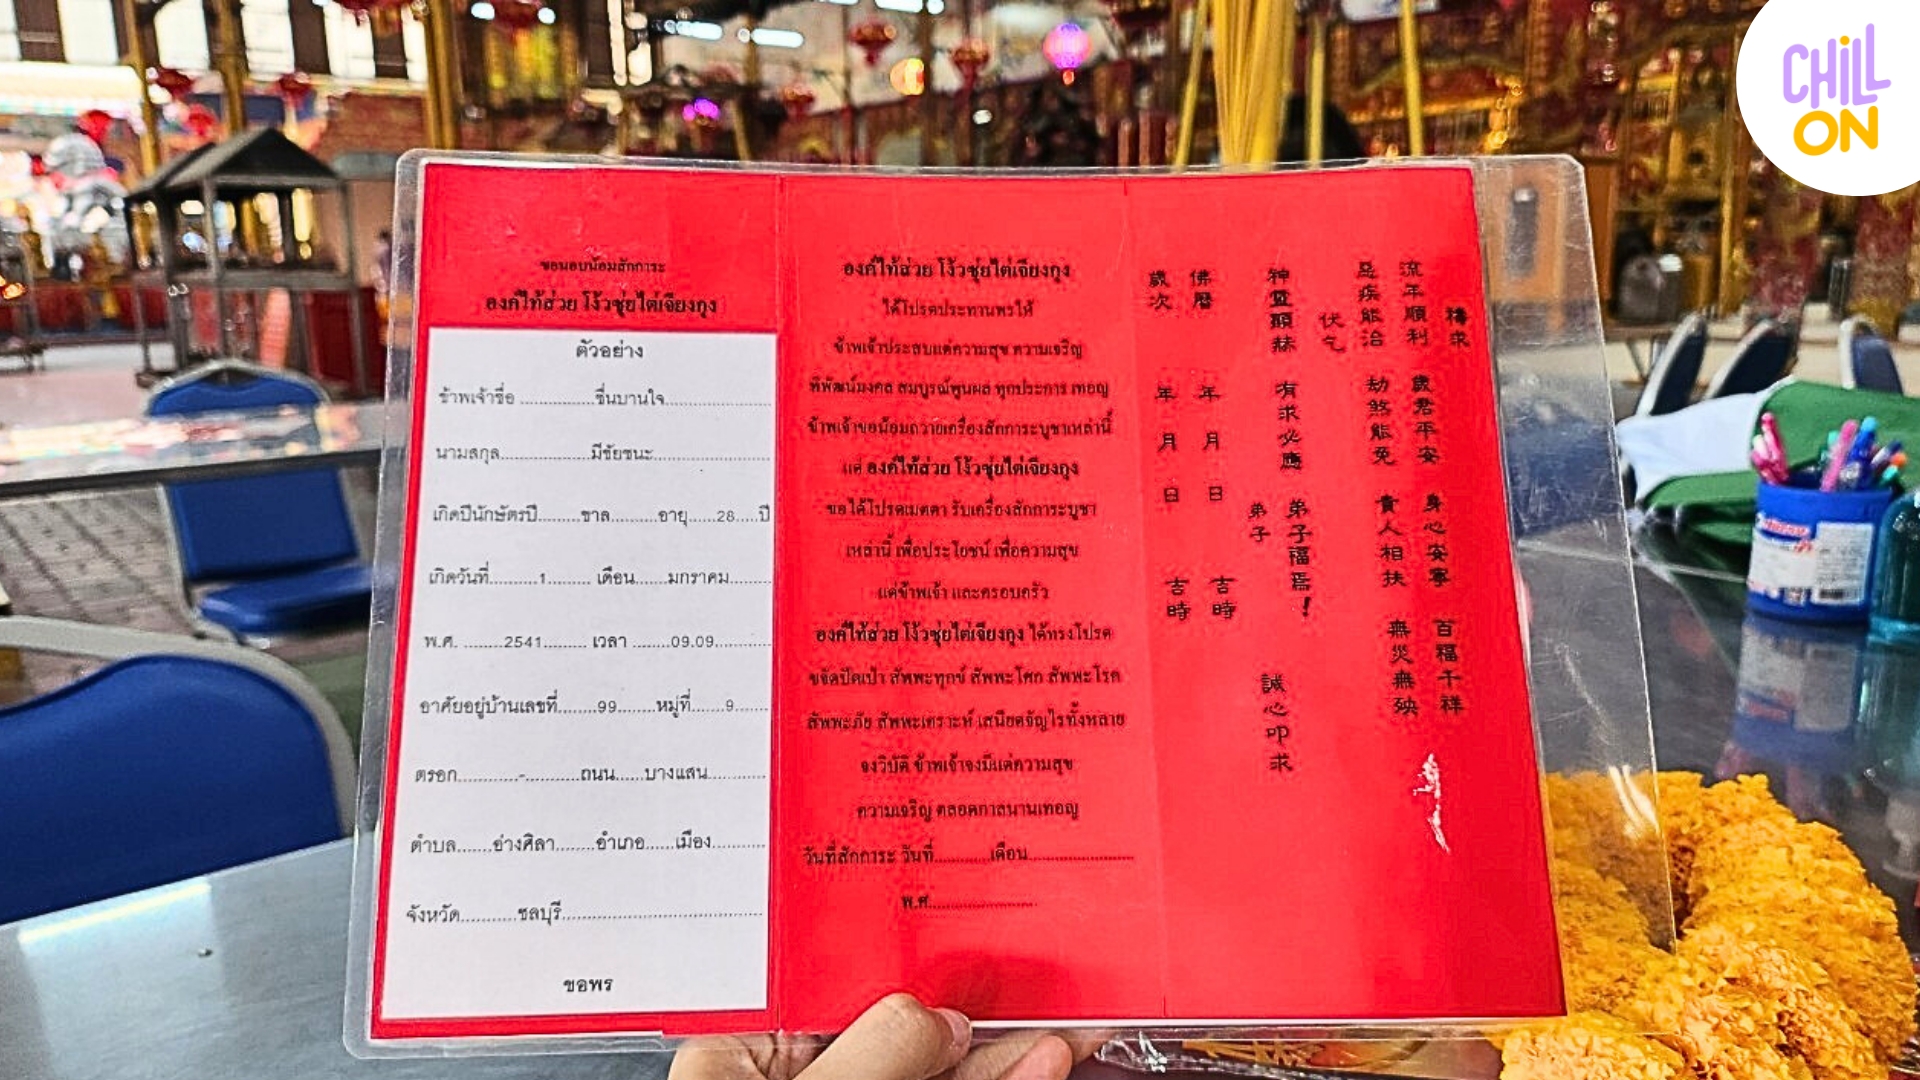 CHILL
ON
ขอนอบน้อมสักการะ
องค์ไท้ส่วย โง้วซุ่ยไต่เจียงกุง
ตัวอย่าง
ข้าพเจ้าชื่อ ...............ชื่นบานใจ......................
นามสกุล..................มีชัยชนะ........................
เกิดปีนักษัตรปี........ขาล.........อายุ.....28....ปี
เกิดวันที่..........1......... เดือน......มกราคม........
พ.ศ. ........2541........ เวลา .......09.09...........
อาศัยอยู่บ้านเลขที่........99........หมู่ที่.......9.......
ตรอก............-...........ถนน.....บางแสน............
ตำบล......อ่างศิลา........อำเภอ.....เมือง...........
จังหวัด..........ชลบุรี....................................
ขอพร
องค์ไท้ส่วย โง้วซุ่ยไต่เจียงกุง
ได้โปรดประทานพรให้
ข้าพเจ้าประสบแต่ความสุข ความเจริญ
พิพัฒน์มงคล สมบูรณ์พูนผล ทุกประการ เทอญ
ข้าพเจ้าขอน้อมถวายเครื่องสักการะบูชาเหล่านี้
แด่ องค์ไท้ส่วย โง้วซุ่ยไต่เจียงกุง
ขอได้โปรดเมตตา รับเครื่องสักการะบูชา
เหล่านี้ เพื่อประโยชน์ เพื่อความสุข
แด่ข้าพเจ้า และครอบครัว
องค์ไท้ส่วย โง้วซุ่ยไต่เจียงกุง ได้ทรงโปรด
ขจัดปัดเป่า สัพพะทุกข์ สัพพะโศก สัพพะโรค
สัพพะภัย สัพพะเคราะห์ เสนียดจัญไรทั้งหลาย
จงวิบัติ ข้าพเจ้าจงมีแต่ความสุข
ความเจริญ ตลอดกาลนานเทอญ
วันที่สักการะ วันที่.............เดือน.........................
พ.ศ.........................
禱求
流年順利 歲君平安 身心安寧 百福千祥
惡疾能治 劫煞能免 貴人相扶 無災無殃
伏乞
神靈顯赫 有求必應 弟子福焉!
弟子 誠心叩求
佛曆 年 月 日 吉時
歲次 年 月 日 吉時